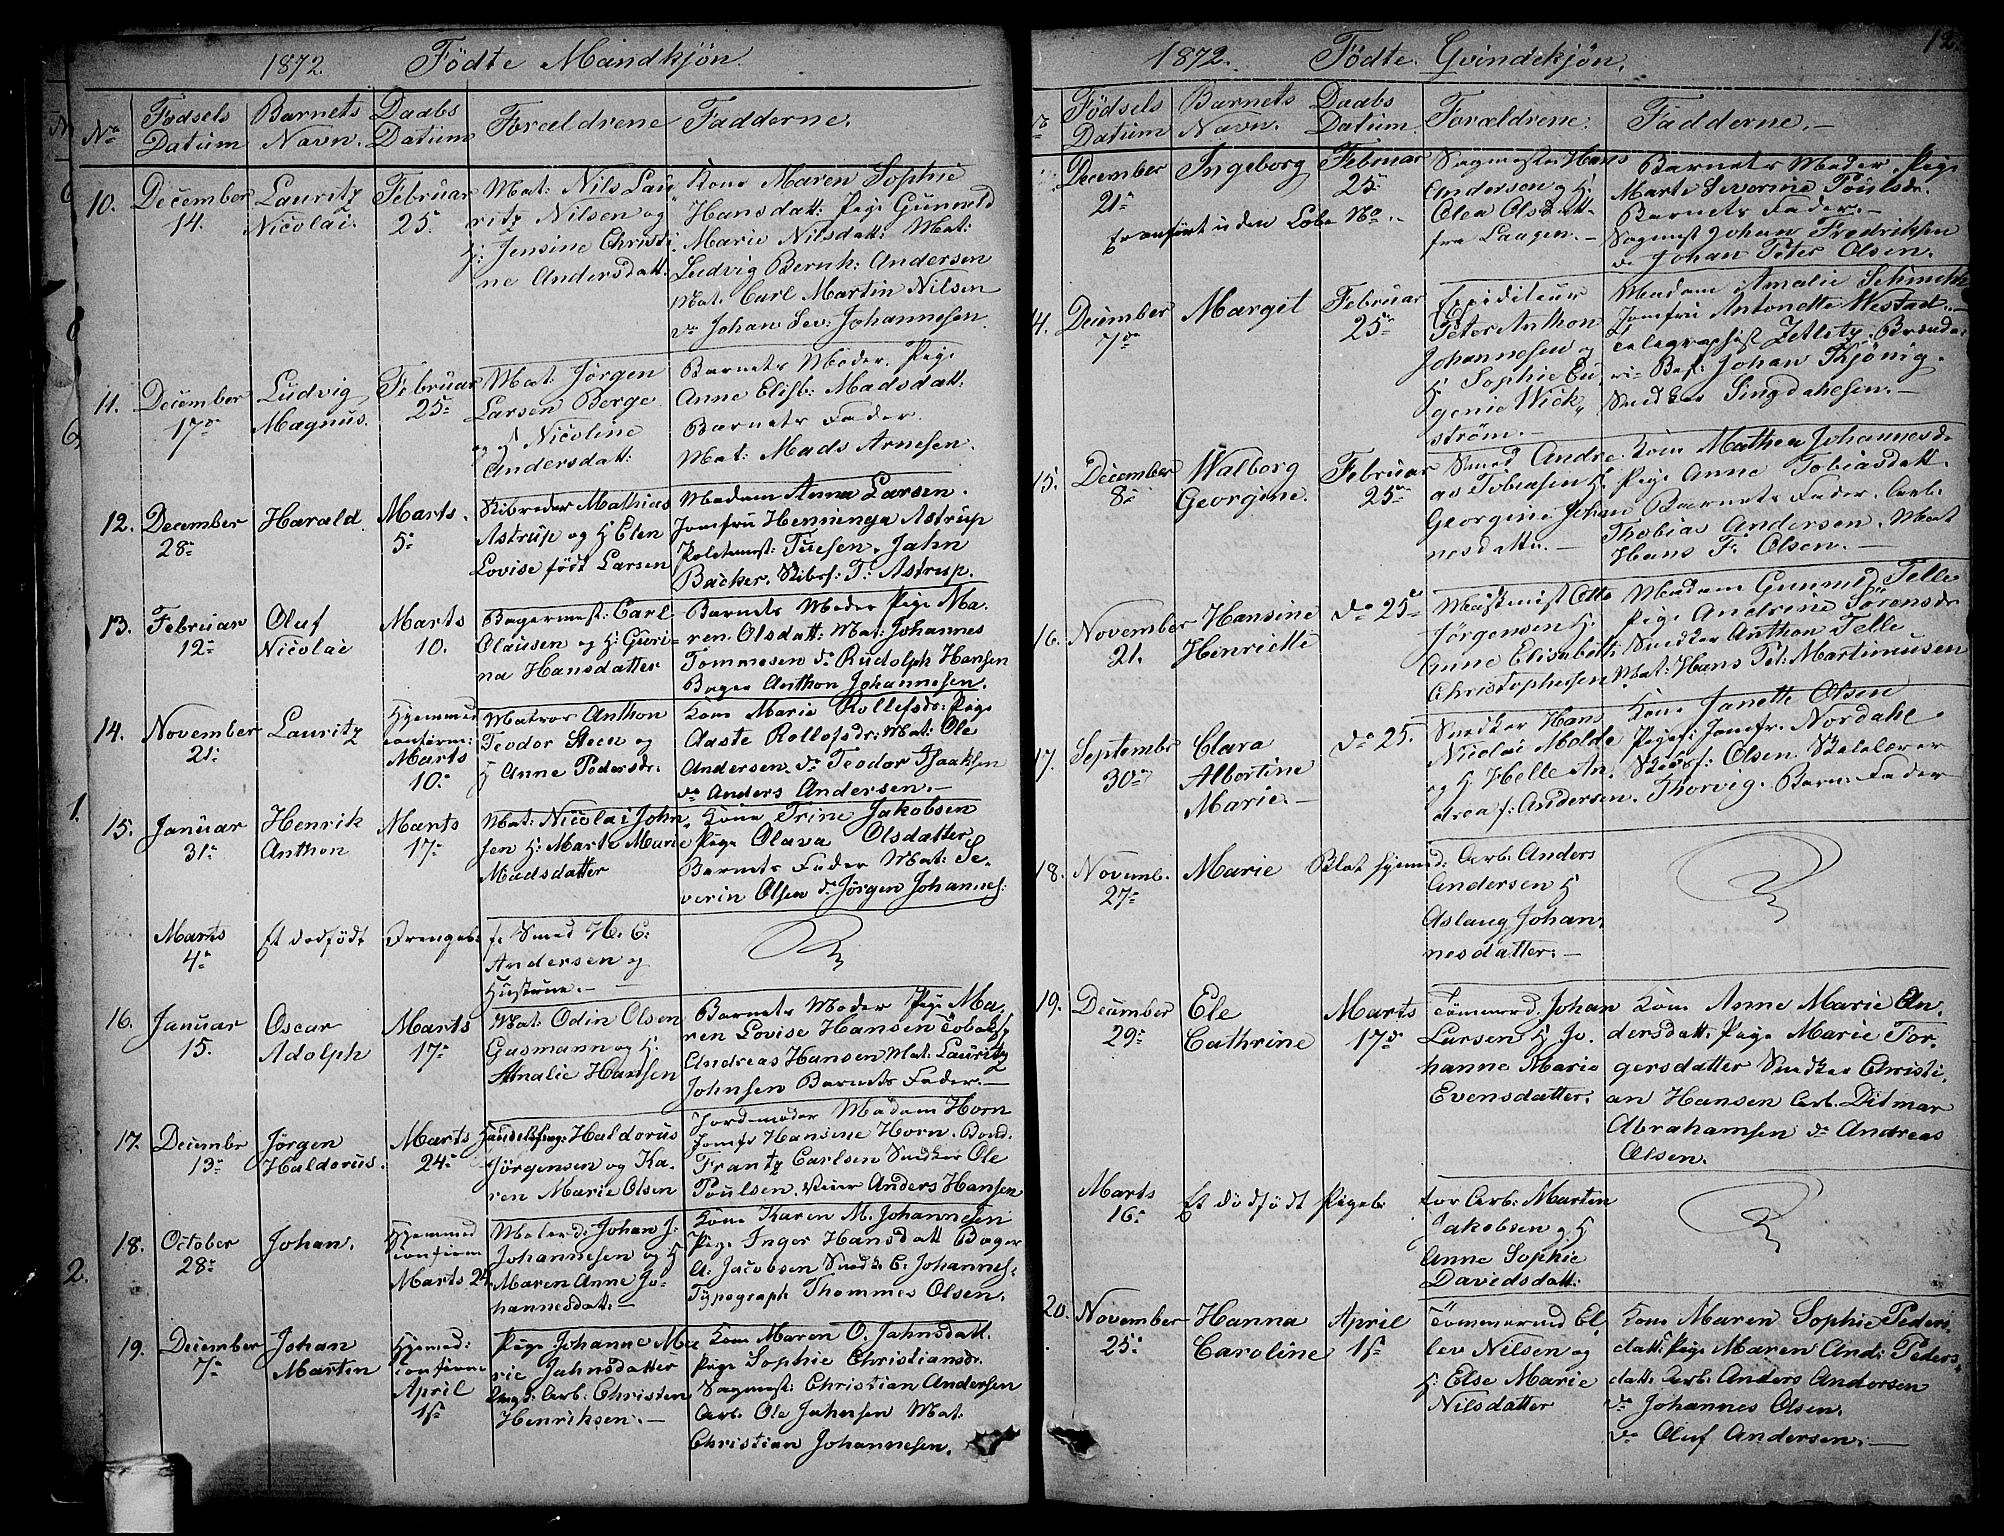 1872. Födte Mandkjøn.
No Fødsels Datum Barnets Navn. Daabs Datum Forældrene Fadderne.
10. December 14. Lauritz Nicolai. Februar 25.
Mat: Nils Lau
ritz Nilsen og
H: Jensine Christi
ne Andersdatt:
Kone Maren Sophie
Hansdatt: Pige Gunneld
Marie Nilsdatt: Mat:
Ludvig Bernh: Andersen
Mat: Carl Martin Nilsen
do Johan Sev: Johannesen.
11. December 17de Ludvig Magnus. Februar 25
Mat: Jörgen
Larsen Berge
og H Nicoline
Andersdatt:
Barnets Moder. Pige
Anne Elisb: Madsdatt:
Barnets Fader.
Mat: Mads Arnesen.
12. December 28 Harald. Marts 5
Skibreder Mathias
Astrup og H Elen
Lovise født Larsen
Madam Anna Larsen.
Jomfru Henninga Astrup
Jahn
Backer. Skibsf: T: Astrup.
13. Februar 12 Oluf Nicolai Marts 10.
Bagermest: Carl
Olausen og H Guri-
na Hansdatter
Barnets Moder Pige Ma.
ren. Olsdatt: Mat: Johannes
Tommesen do Rudolph Hansen
Bager Anthon Johannesen.
14. November 21 Lauritz Hjemmed confirm: Marts 10
Matros Anthon
Teodor Steen og
H Anne Pedersdr.
Kone Marie Rollefsdr: Pige
Aaste Rollofsdr: Mat: Ole
Andersen. do Teodor Isaaksen
do Anders Andersen.—
15. Januar 31 Henrik Anthon Marts 17
Mat: Nicolai John
sen H: Marte Marie
Madsdatter
Kone Trine Jakobsen
Pige Olava Olsdatter
Barnets Fader Mat: Se-
verin Olsen do Jørgen Johannes:
Marts 4 Et dødfödt Drengeb:
f: Smed H. C:
Andersen og
Hustrue.—
16. Januar 15. Oscar Adolph Marts 17
Mat: Odin Olsen
Gusmann og H:
Amalie Hansen
Barnets Moder Pige Ma-
ren Lovise Hansen
Andreas Hansen Mat: Lauritz
Johnsen Barnets Fader.—
17. Decembr 13 Jørgen Halderus. Marts 24
Haldorus
Jörgensen og Ka-
ren Marie Olsen
Jordemoder Madam Horn
Jomfr Hansine Horn.
Frantz Carlsen Snedker Ole
Poulsen. Anders Hansen
18. October 28 Johan. Hjemmed confirm Marts 24
Johan J:
Johannesen og H
Maren Anne Jo-
hannesdat:—
Kone Karen M. Johannesen
Pige Inger Hansdatt Bager
A: Jacobsen C. Johannes.
Typograph Thommes Olsen.
19. December 7 Johan Martin Hjemmed: confirme April 1ste
Pige Johanne Ma
rie Jahnsdatter
Ungk: Arb: Christen
Henriksen.—
Kone Maren O. Jahnsdatt.
Pige Sophie Christiansdr.
Sagmest: Christian Andersen
Arb: Ole Jahnsen Mat:
Christian Johannesen.
12.
1872. Födte Qvindekjön.
Födsels Datum Barnets Navn. Daabs Datum. Forældrene. Fadderne.—
December 21 Ingeborg Februar 25
er anført uden Løbe No.—
Sagmester Hans
Andersen og H:
Olea Olsdatt
fra Laagen.—
Barnets Moder. Pige
Marte Severine Poulsdr.
Barnets Fader.—
Sagmest Johan Fredriksen
do Johan Peter Olsen.
4. December 7de Margit Februar 25
Expediteur
Peter Anthon
Johannesen og
H Sophie Eu
genie Wick
ström.—
Madam Amalie
Jomfru Antonette Westad.—
Telegraphist Zetlitz.
Johan Kjönig.
Snedker Singdahlsen.—
15. December 8 Walborg Georgine. Februar 25
Smed Andre
as Tobiasen H:
Georgine Johan
nesdatt.—
Kone Mathea Johannesd.
Pige Anne Tobiasdatt.
Barnets Fader. Arb:
Thobias Andersen. Mat
Hans F: Olsen.—
16. November 21. Hansine Henriette do 25
Otto
Jørgensen H:
Anne Elisabeth
Christophersen
Madam Telle
Pige Andrine Sörensdr
Snedker Anthon Telle
Mat: Hans Pet: Martinusen
17. Septembr 30 Clara Albertine Marie.— do 25.
Snedker Hans
Nicolai Molde
og H Helle An.
drea f: Andersen.
Kone Janette Olsen
Pigef: Jomfr: Nordahl
Skibsf: Olsen. Skolelærer
Thorvig. Barn: Fader
18. Novemb. 27 Marie Blot hjemmed:
Arb: Anders
Andersen H
Aslaug Johan,
nesdatter.—
19. December 29 Ele Cathrine Marts 17de
Tömmermd. Johan
Larsen H Jo.
hanne Marie
Evensdatter.
Kone Anne Marie An,
dersdatt: Pige Marie Tor-
gersdatter Snedker Christi,
an Hansen Arb. Ditmar
Abrahamsen do Andreas
Olsen.
Marts 16 Et dödfödt Pigeb.
for Arb: Martin
Jakobsen og H
Anne Sophie
Davidsdatt:
20. November 25 Hanna Caroline April 1ste
Tömmermd El,
lev Nilsen og
H: Else Marie
Nilsdatter
Kone Maren Sophie Peders,
datt: Pige Maren And: Peders,
datt: Arb: Anders Andersen
do Johannes Olsen.
do Oluf Andersen.—